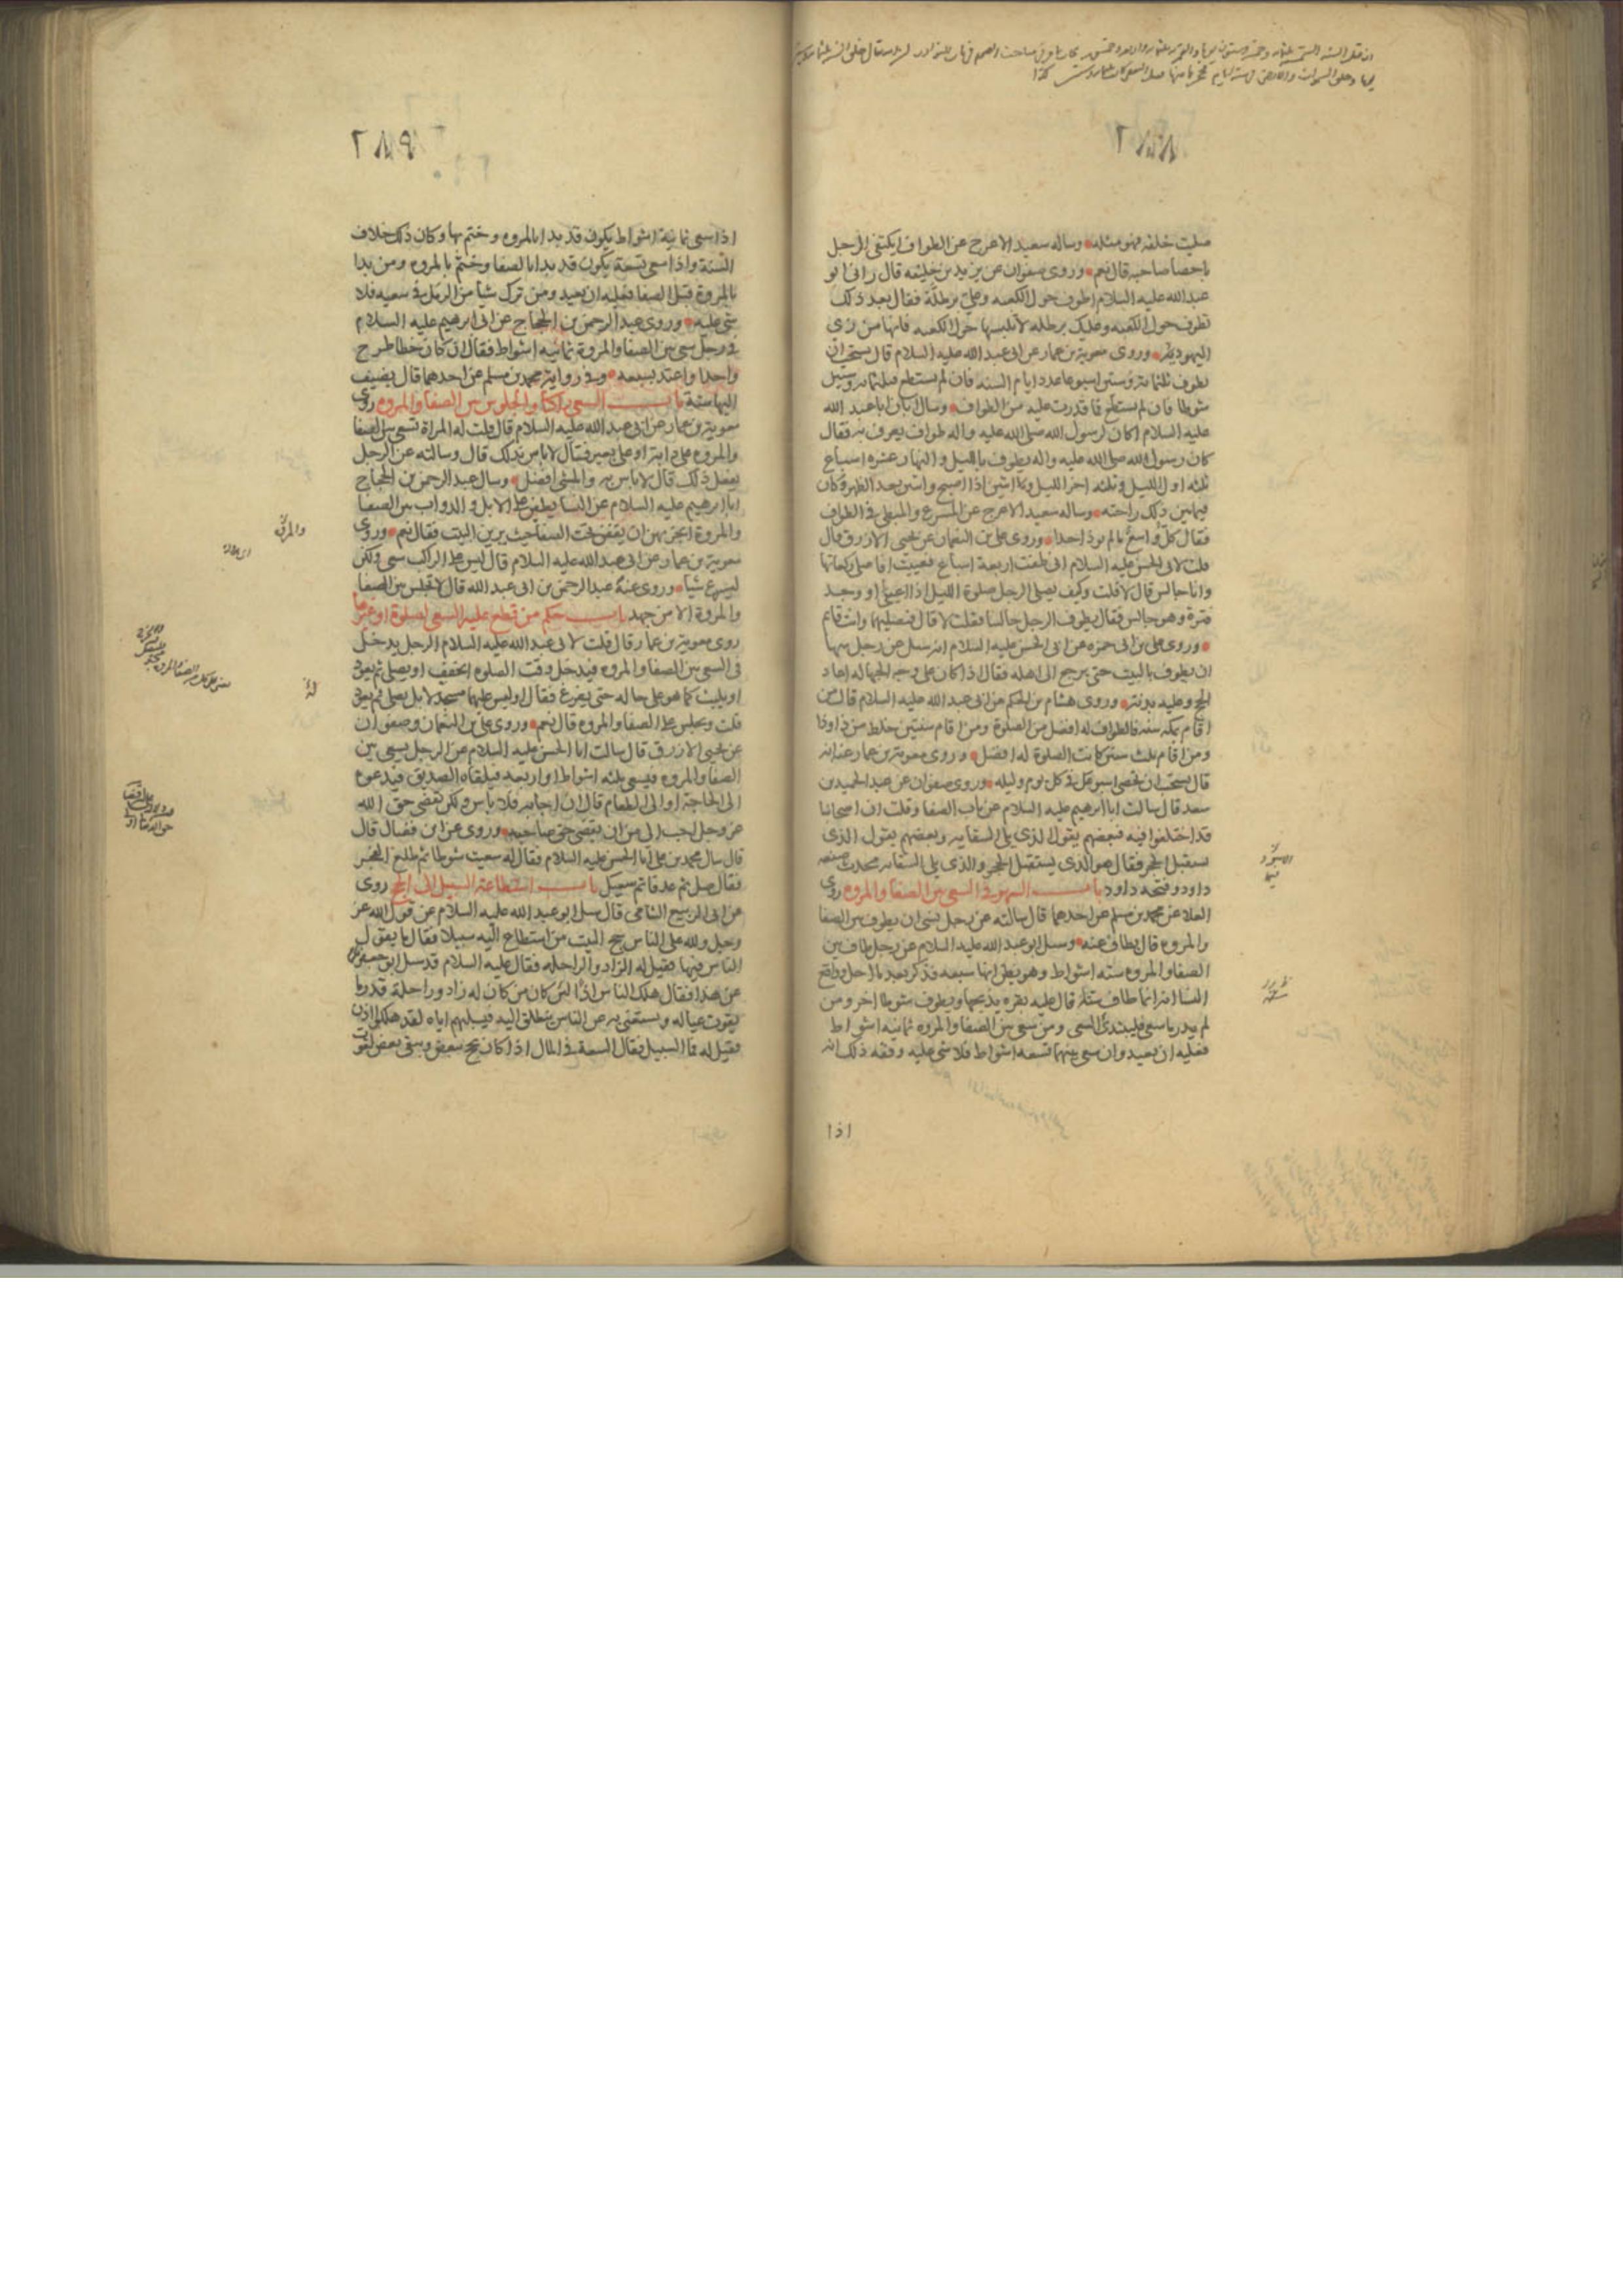 صليت خلفه فهو مثله وساله سعيد الاعرج عن الطواف ايكتفي الرجل
باحصا صاحبه قال نعم وروى صفوان عن يزيد بن خليفه قال راني ابو
عبدالله عليه السلام اطوف حول الكعبه وعلي برطلة فقال بعد ذلك
تطوف حول الكعبه وعليك برطله لا تلبسها حول الكعبه فانها من زى
اليهود وروى معوية بن عمار عن ابى عبد الله عليه السلام قال يستحب ان
تطوف ثلثمائة وستين اسبوعا عدد ايام السنه فان لم تستطع فثلثمائة وستين
شوطا فان لم تستطع فما قدرت عليه من الطواف وسال ابان ابا عبد الله
عليه السلام اكان لرسول الله صلى الله عليه واله طواف يعرف به فقال
كان رسول الله صلى الله عليه واله يطوف بالليل والنهار عشره اسباع
ثلثه اول الليل وثلثه اخر الليل واثنين اذا اصبح واثنين بعد الظهر وكان
فيما بين ذلك راحته وساله سعيد الاعرج عن المسرع والمبطى في الطواف
فقال كل واسع ما لم يوذ احدا وروى على بن النعمان عن يحيى الازرق قال
قلت لابى الحسن عليه السلام انى طفت اربعة اسباع فعييت افاصلى ركعاتها
وانا جالس قال لا قلت وكيف يصلى الرجل صلوة الليل اذا اعيا او وجد
فترة وهو جالس فقال يطوف الرجل جالسا فقلت لا قال فتصليهما وانت قائم
وروى على بن ابى حمزه عن ابى الحسن عليه السلام انه سئل عن رجل سها
ان يطوف بالبيت حتى يرجع الى اهله فقال اذا كان على وجه الجهاله اعاد
الحج وعليه بدنة وروى هشام بن الحكم عن ابى عبد الله عليه السلام قال من
اقام بمكه سنه فالطواف له افضل من الصلوة ومن اقام سنتين خلط من ذا وذا
ومن اقام ثلث سنين كانت الصلوة له افضل وروى معوية بن عمار عنه انه
قال يستحب ان تحصى اسبوعك في كل يوم وليله وروى صفوان عن عبد الحميد بن
سعد قال سالت ابا ابرهيم عليه السلام عن باب الصفا وقلت ان اصحابنا
قد اختلفوا فيه فبعضهم يقول الذي يلى السقايه وبعضهم يقول الذى
يستقبل الحجر فقال هو الذى يستقبل الحجر والذى يلى السقايه محدث صنعه
داود وفتحه داود باب السهو في السعى بين الصفا والمروه روى
العلا عن محمد بن مسلم عن احدهما قال سالته عن رجل نسى ان يطوف بين الصفا
والمروه قال يطاف عنه وسئل ابو عبد الله عليه السلام عن رجل طاف بين
الصفا والمروه سته اشواط وهو يظن انها سبعه فذكر بعد ما احل وواقع
النسا انه انما طاف ستة قال عليه بقره يذبحها ويطوف شوطا اخر ومن
لم يدر ما سعى فليبتدئ السعى ومن سعى بين الصفا والمروه ثمانيه اشواط
فعليه ان يعيد وان سعى بينهما تسعه اشواط فلا شى عليه وفقه ذلك انه
اذا
اذا سعى ثمانية اشواط يكون قد بدا بالمروه وختم بها وكان ذلك خلاف
السنة واذا سعى تسعة يكون قد بدا بالصفا وختم بالمروه ومن بدا
بالمروة قبل الصفا فعليه ان يعيد ومن ترك شيا من الرمل في سعيه فلا
شى عليه وروى عبد الرحمن بن الحجاج عن ابى ابرهيم عليه السلام
في رجل سعى بين الصفا والمروة ثمانيه اشواط فقال ان كان خطا طرح
واحدا واعتد بسبعه وفي رواية محمد بن مسلم عن احدهما قال يضيف
اليها ستة باب السعى راكبا والجلوس بين الصفا والمروه روى
معوية بن عمار عن ابى عبد الله عليه السلام قال قلت له المراة تسعى بين الصفا
والمروه على دابة او على بعير فقال لا باس بذلك قال وسالته عن الرجل
يفعل ذلك قال لا باس به والمشى افضل وسال عبد الرحمن بن الحجاج
ابا ابرهيم عليه السلام عن النسا يطفن على الابل والدواب بين الصفا
والمروة ايجزيهن ان يقفن تحت الصفا حيث يرين البيت فقال نعم وروى
معوية بن عمار عن ابى عبد الله عليه السلام قال ليس على الراكب سعى ولكن
ليسرع شيا وروى عنه عبد الرحمن بن ابى عبد الله قال لا تجلس بين الصفا
والمروة الا من جهد باب حكم من قطع عليه السعى لصلوة او غيرها
روى معوية بن عمار قال قلت لابى عبد الله عليه السلام الرجل يدخل
في السعى بين الصفا والمروه فيدخل وقت الصلوه ايخفف او يصلى ثم يعود
او يلبث كما هو على حاله حتى يفرغ فقال اوليس عليهما مسجد لا بل يصلى ثم يعود
قلت ويجلس على الصفا والمروه قال نعم وروى على بن النعمان وصفوان
عن يحيى الازرق قال سالت ابا الحسن عليه السلام عن الرجل يسعى بين
الصفا والمروه فيسعى ثلثه اشواط او اربعه فيلقاه الصديق فيدعوه
الى الحاجة او الى الطعام قال ان اجابه فلا باس ولكن تقضى حق الله
عز وجل احب الى من ان تقضى حق صاحبه وروى عن ابن فضال قال
قال سال محمد بن على ابا الحسن عليه السلام فقال له سعيت شوطا ثم طلع الفجر
فقال صل ثم عد فاتم سعيك باب استطاعة السبيل الى الحج روى
عن ابى الربيع الشامى قال سئل ابو عبد الله عليه السلام عن قول الله عز
وجل ولله على الناس حج البيت من استطاع اليه سبيلا فقال ما يقول
الناس فيها فقيل له الزاد والراحله فقال عليه السلام قد سئل ابو جعفر
عن هذا فقال هلك الناس اذا لئن كان من كان له زاد وراحلة قدر ما
يقوت عياله ويستغنى به عن الناس ينطلق اليه فيسلبهم اياه لقد هلكوا اذن
فقيل له فما السبيل فقال السعة في المال اذا كان يحج ببعض ويبقى بعض لقوت